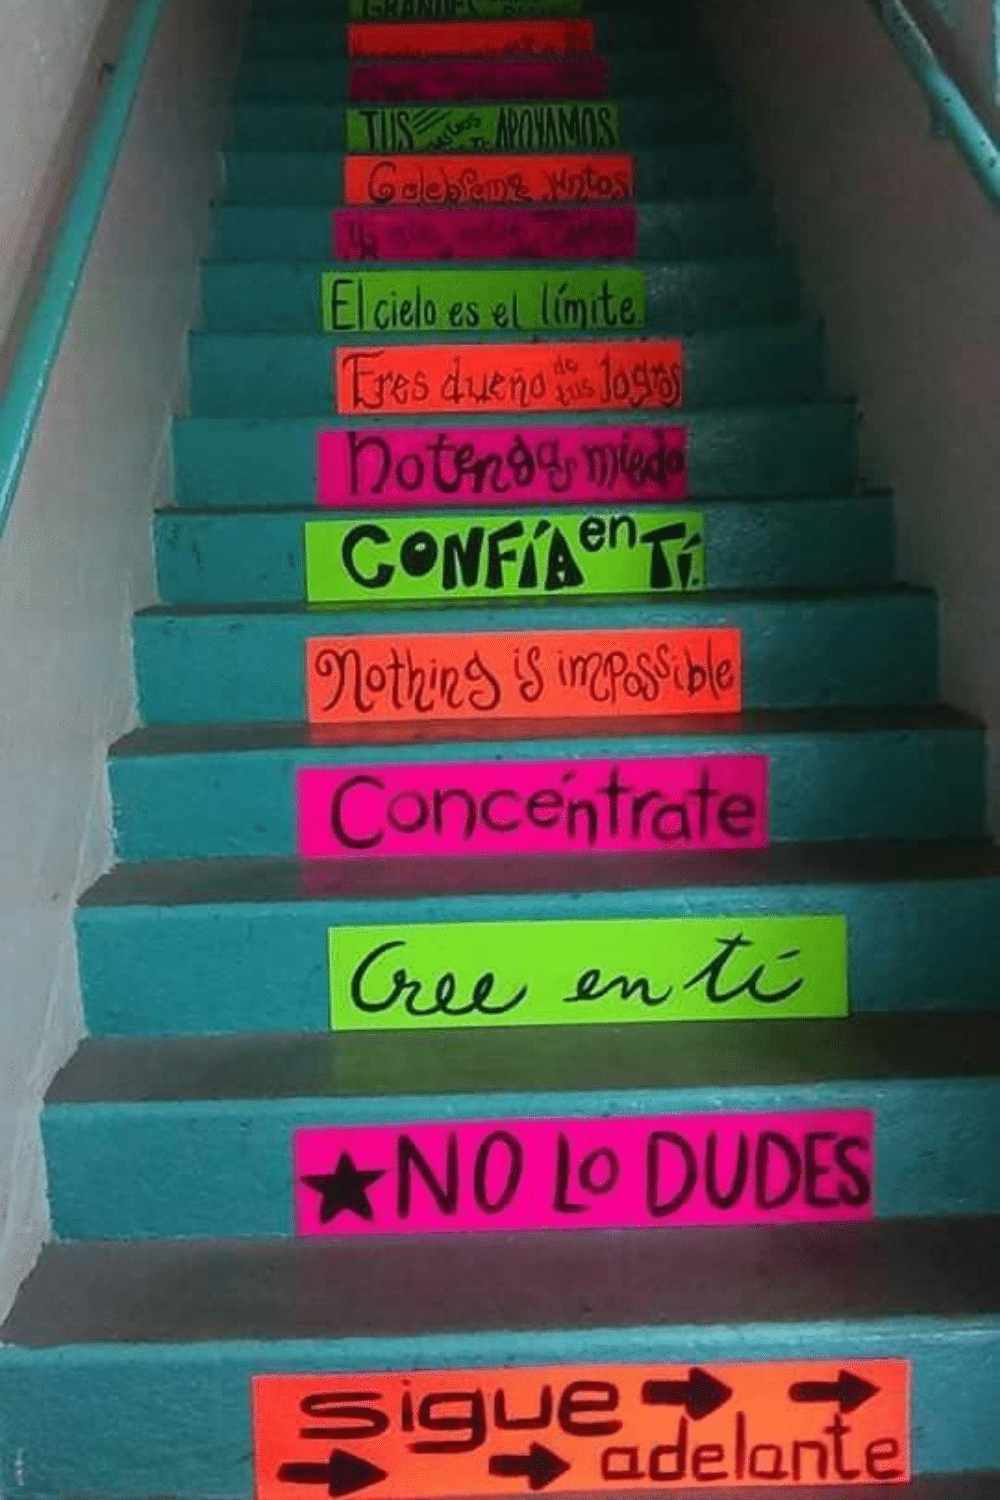 GRANDES
TUS AMIGOS TE APOYAMOS
Celebremos juntos
El cielo es el límite
Eres dueño de tus logros
No tengas miedo
CONFÍA en Tí.
Nothing is impossible
Concéntrate
Cree en tí
NO Lo DUDES
sigue
adelante